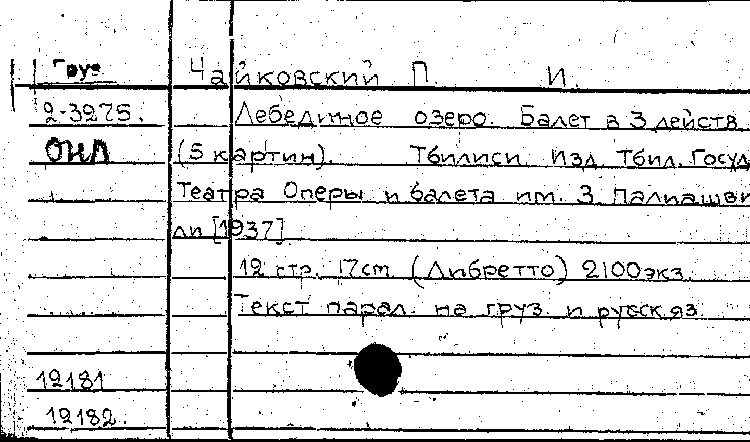 Груз Чайковский П. И.
2-3275. Лебединое озеро. Балет в 3 действ.
ОНЛ (5 картин). Тбилиси. Изд. Тбил. Госуд
Театра Оперы и балета им. З Палиашви
ли [1937]
12 стр. 17см (Либретто) 2100экз.
Текст парал. на груз. и русск яз.
12181
12182.